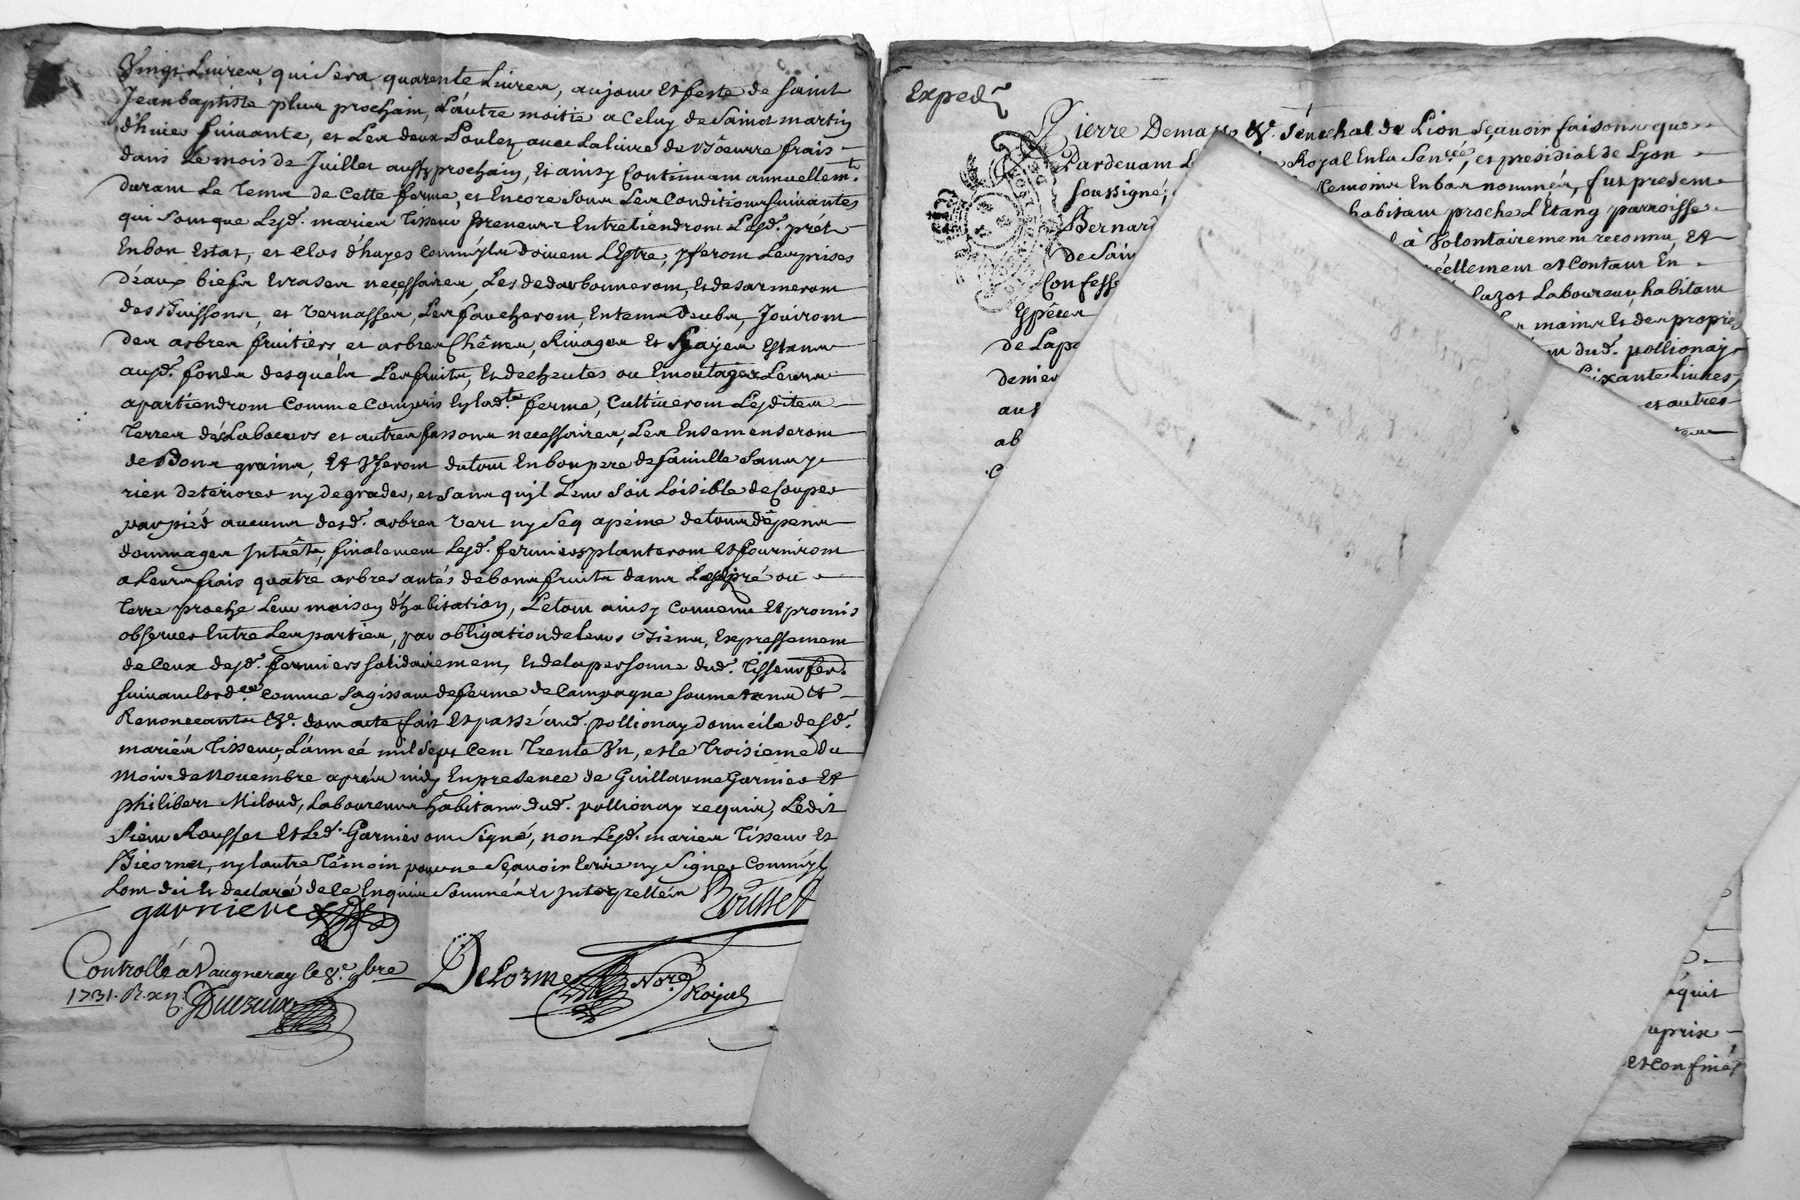 Vingt Livres, qui sera quarente Livres, au jour et feste de saint
Jean baptiste plus prochain, L'autre moitié a Celuy de Saint martin
d'huier suivante, et Les deux Poulets avec La liure de Bœurre frais
dans Le mois de Juillet aussy prochain, Et ainsy Continuant annuellemt.
durant Le Tems de Cette ferme, et Encore sous Les Conditions suivantes
qui sont que Lesd. mariés Tisseur preneurs Entretiendront Lesd. prét
En bon Estat, et Clos d'hayes comm'yls doivent L'Estre, y feront Les prises
d'eaux biefs Et rases necessaires, Les dedarbonneront, Et desarmeront
des Buissons, et Vernasses, Les faucheront, En tems deubs, Jouiront
des arbres fruitiers et arbres Chênes, Rivages Et hayes Estans
ausd. fonds desquels Les fruits, Et decheutes ou Emoutages Leurs
apartiendront Comme Compris En lad.te ferme, Cultiveront Lesdites
Terres de Labeurs et autres fassons necessaires, Les Ensemenseront
de Bons grains, Et Useront du tout En bon pere de famille Sans y
rien deteriorer ny degrader, et sans qu'yl Leur Soit Loisible de Couper
par pied aucuns desd. arbres Vert ny Seq a peine de tous dépens
dommages Intrêts, finalement Lesd. fermiers planteront Et fourniront
a Leurs frais quatre arbres antés de bons fruits dans Lesd. pré ou
Terre proche Leur maison d'habitation, Le tout ainsy Convenu Et promis
observer Entre Les parties, par obligation de Leurs Biens, Expressement
de Ceux desd. fermiers solidairement, Et de la personne dud. Tisseur
suivant Lord.ce comme S'agissant de ferme de Campagne soumettans Et
Renoncants &c. dont acte fait Et passé aud. pollionay domicile desd.
mariés Tisseur, L'année mil sept Cent Trente Un, et le Troisieme du
Mois de Novembre aprés midy En presence de Guillaume Garnier Et
philibert Miloud, Laboureurs habitans dud. pollionay requis, Ledit
Sieur Rousset Et Led. Garnier ont Signé, non Lesd. mariés Tisseur Et
ny L'autre Témoin pour ne Sçavoir Ecrire ny Signer Comm'yl
Lont dit Et declaré de ce Enquis Sommés Et Interpellés Rousset
garniere
Controllé a Vaugneray le 8.e 9bre Delorme Nore.
1731. R. Royal
Exped
Pierre Demasso &c. Sénechal de Lion Sçavoir faisons que
Pardevant L Royal En la Sen.cée, et presidial de Lyon
soussigné, temoins En bas nommés, fut present
Bernard habitant proche L'Etang parroisse
de Sain a Volontairement reconnu, Et
Confesse réellement et Contant En
Especes Lazot Laboureur, habitant
de La pa mains Et des propres
denier dud. pollionay
au soixante Livres,
ab et autres
quit
prix
et confinés